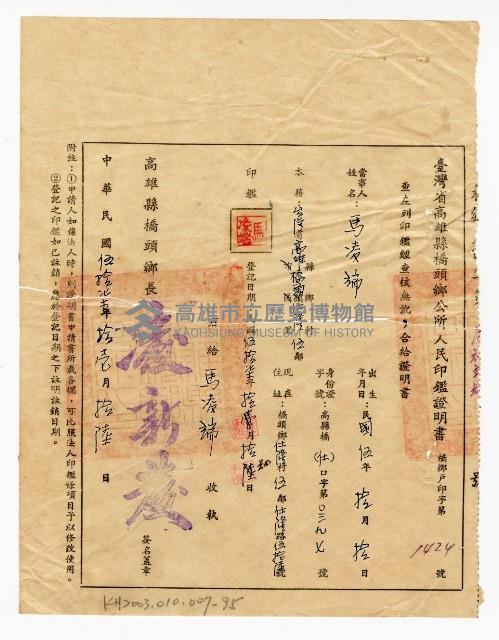 臺灣省高雄縣橋頭鄉公所人民印鑑證明書 橋鄉戶印字第 1424 號
查左列印鑑經查核無訛,合給證明書
當事人姓名:馬凌瑞
出生年月日:民國伍年拾月拾日
身份證字號:高縣橋(仕)口字第
現在住址:橋頭鄉仕隆村伍鄰仕隆路
本籍:臺灣省高雄縣橋頭鄉
印鑑
登記日期
右給 馬凌瑞 收執
高雄縣橋頭鄉長
簽名蓋章
中華民國伍拾柒年拾壹月拾陸日
附註:①申請人如係法人時,則證明書申請書所載各欄,可比照法人印鑑條項目予以修改使用。
②登記之印鑑如已註銷,應於登記日期之下註明註銷日期。
高雄市立歷史博物館
KAOHSIUNG MUSEUM OF HISTORY
KH2003.010.007-95